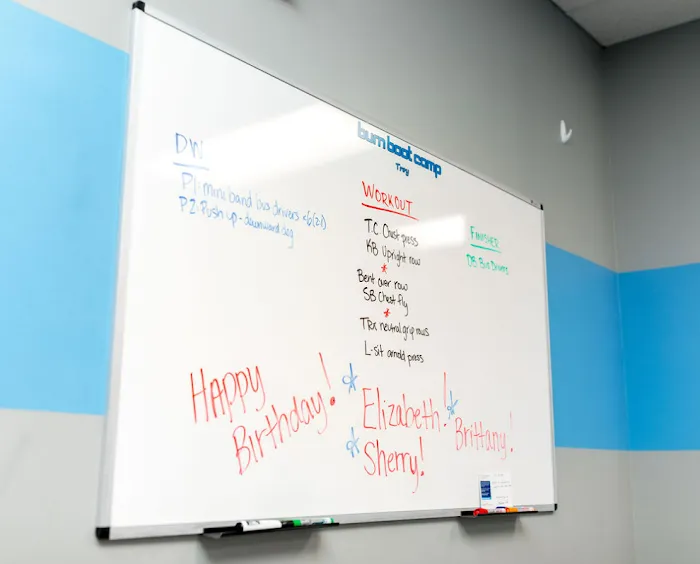 burn boot camp
Troy
DW
P1: mini band bus drivers <6(21)
P2: Push up - downward dog
WORKOUT
T.C Chest press
KB Upright row
*
Bent over row
SB Chest fly
*
TRX neutral grip rows
L-sit arnold press
FINISHER
DB Bus Drivers
Happy Birthday!
Elizabeth!
Sherry!
Brittany!